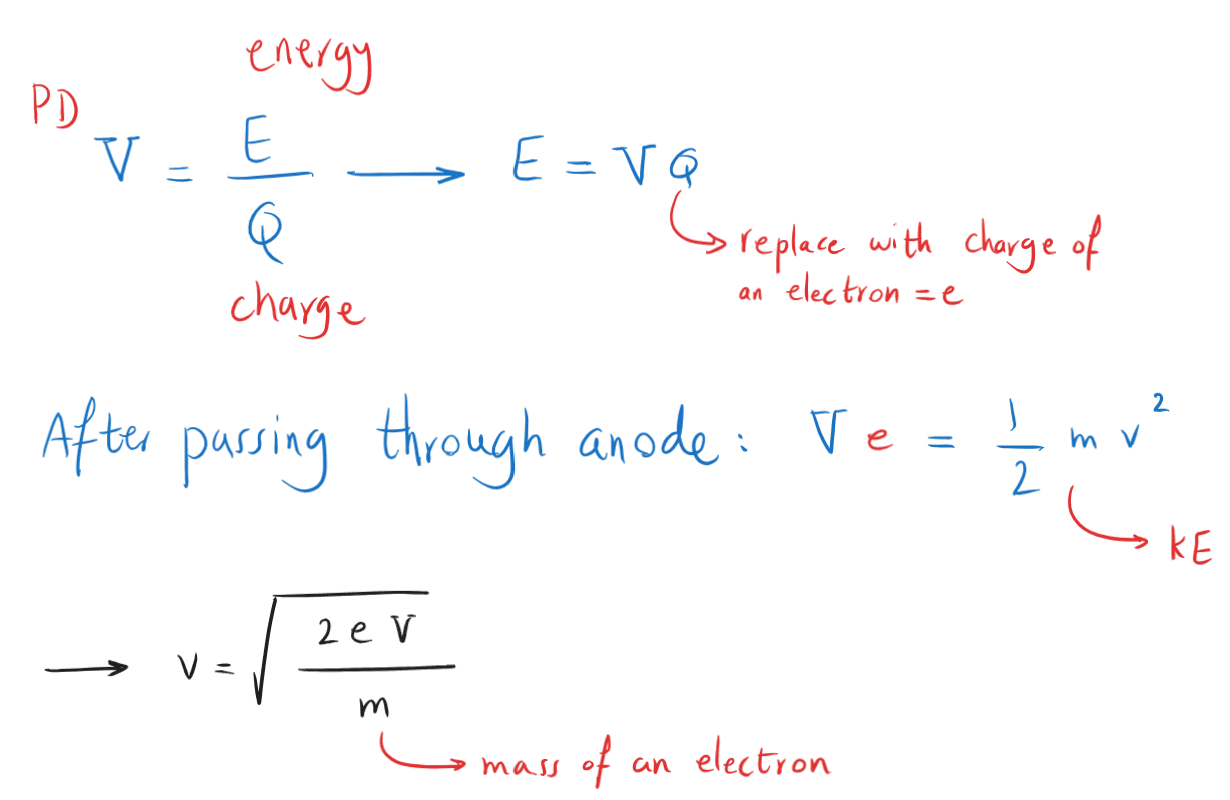 energy
PD
V = E / Q → E = V Q
charge
replace with charge of
an electron = e
After passing through anode: V e = 1/2 m v²
kE
→ v = √(2 e V / m)
mass of an electron